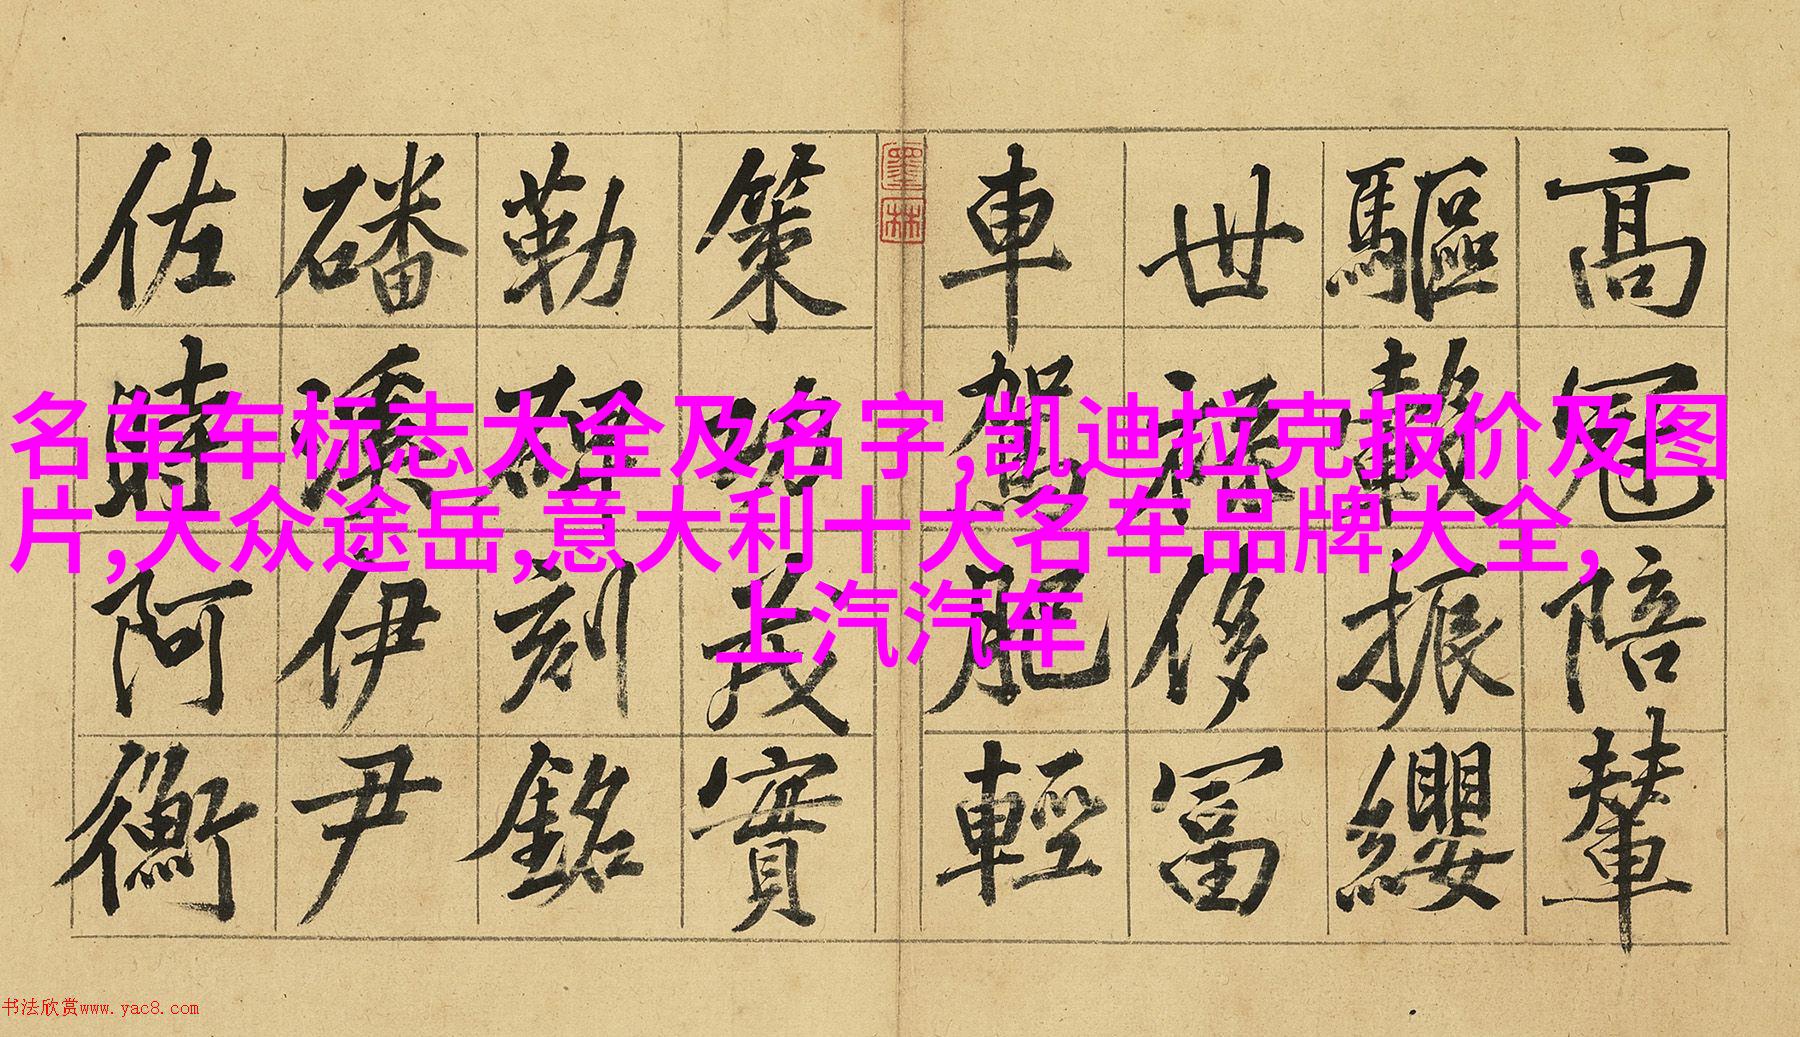 高冠陪輦
驅轂振纓
世祿侈富
車駕肥輕
墨林
策功茂實
勒碑刻銘
磻溪伊尹
佐時阿衡
名车车标志大全及名字,凯迪拉克报价及图
片,大众途岳,意大利十大名车品牌大全,
上汽汽车
书法欣赏www.yac8.com